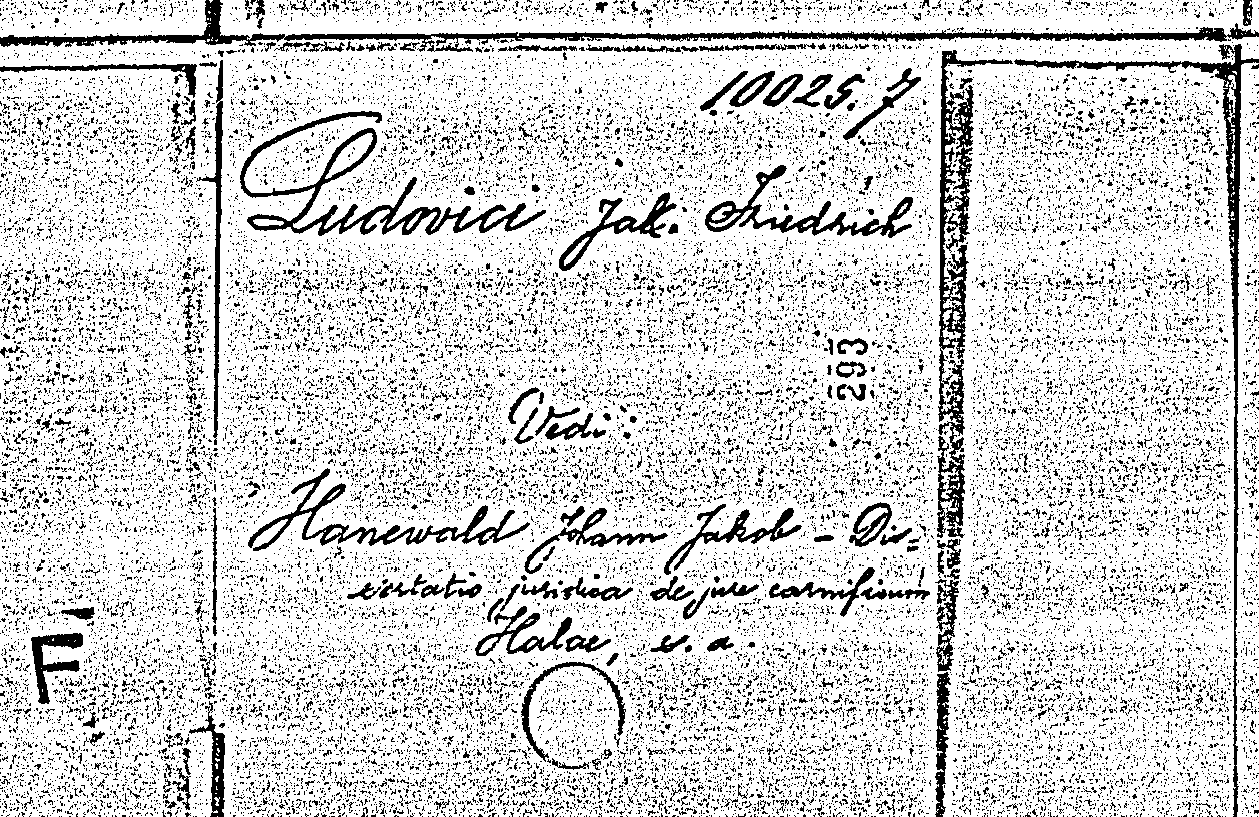 10025.7
Ludovici Jak. Friedrich
293
Vedi:
Hanewald Johann Jakob - Dis=
sertatio juridica de jure carnificum
Halae, s. a.
F